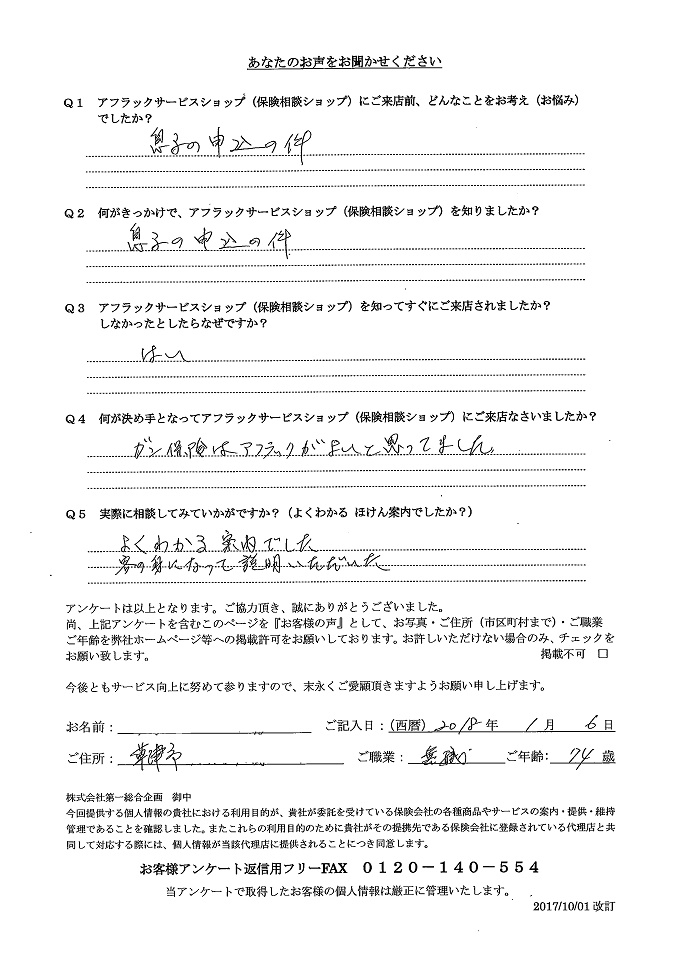 あなたのお声をお聞かせください
Q1 アフラックサービスショップ(保険相談ショップ)にご来店前、どんなことをお考え(お悩み)
でしたか?
息子の申込の件
Q2 何がきっかけで、アフラックサービスショップ(保険相談ショップ)を知りましたか?
息子の申込の件
Q3 アフラックサービスショップ(保険相談ショップ)を知ってすぐにご来店されましたか?
しなかったとしたらなぜですか?
はい
Q4 何が決め手となってアフラックサービスショップ(保険相談ショップ)にご来店なさいましたか?
ガン保険はアフラックがよいと思ってました。
Q5 実際に相談してみていかがですか?(よくわかる ほけん案内でしたか?)
よくわかる案内でした
客の身になって説明いただいた
アンケートは以上となります。ご協力頂き、誠にありがとうございました。
尚、上記アンケートを含むこのページを『お客様の声』として、お写真・ご住所(市区町村まで)・ご職業
ご年齢を弊社ホームページ等への掲載許可をお願いしております。お許しいただけない場合のみ、チェックを
お願い致します。 掲載不可 □
今後ともサービス向上に努めて参りますので、末永くご愛顧頂きますようお願い申し上げます。
お名前: ご記入日:(西暦)2018年 1月 6日
ご住所: 草津市 ご職業: 無職 ご年齢: 74歳
株式会社第一総合企画 御中
今回提供する個人情報の貴社における利用目的が、貴社が委託を受けている保険会社の各種商品やサービスの案内・提供・維持
管理であることを確認しました。またこれらの利用目的のために貴社がその提携先である保険会社に登録されている代理店と共
同して対応する際には、個人情報が当該代理店に提供されることにつき同意します。
お客様アンケート返信用フリーFAX 0120-140-554
当アンケートで取得したお客様の個人情報は厳正に管理いたします。
2017/10/01 改訂